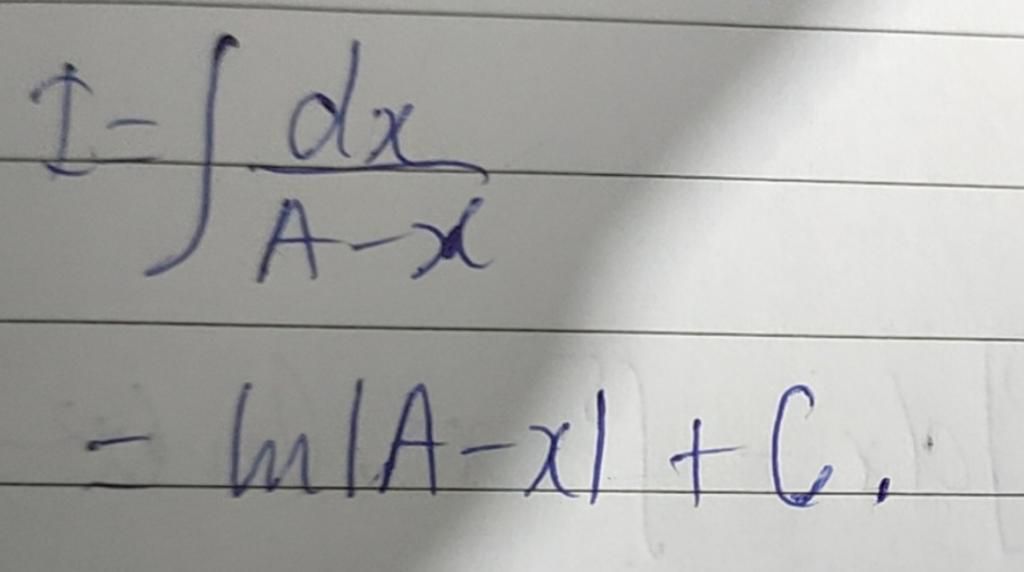 I = ∫ dx / (A - x)
= ln|A - x| + C.